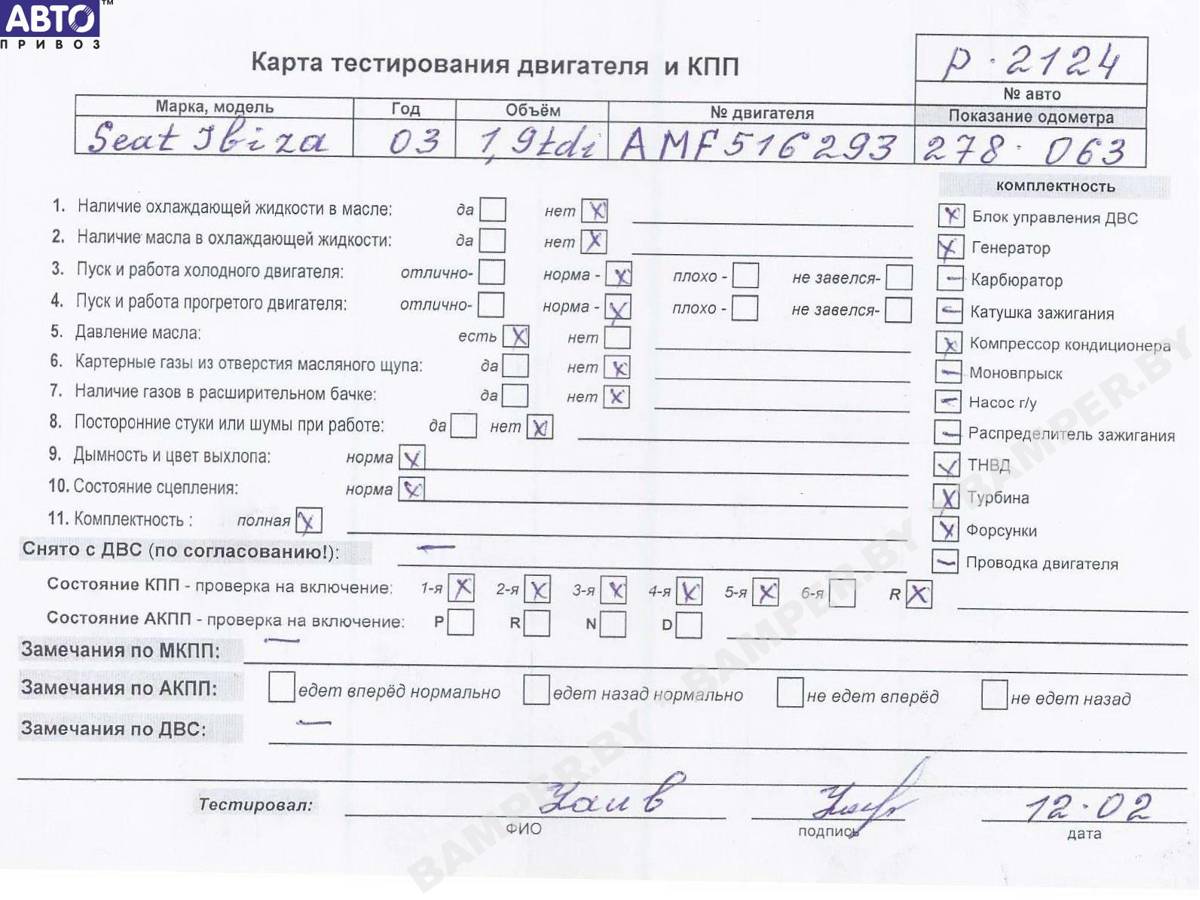 АВТО™
ПРИВОЗ
Карта тестирования двигателя и КПП
р·2124
№ авто
Марка, модель Год Объём № двигателя Показание одометра
Seat Ibiza 03 1,9tdi AMF516293 278·063
комплектность
1. Наличие охлаждающей жидкости в масле: да нет X
2. Наличие масла в охлаждающей жидкости: да нет X
3. Пуск и работа холодного двигателя: отлично- норма - X плохо - не завелся-
4. Пуск и работа прогретого двигателя: отлично- норма - X плохо - не завелся-
5. Давление масла: есть X нет
6. Картерные газы из отверстия масляного щупа: да нет X
7. Наличие газов в расширительном бачке: да нет X
8. Посторонние стуки или шумы при работе: да нет X
9. Дымность и цвет выхлопа: норма X
10. Состояние сцепления: норма X
11. Комплектность : полная X
X Блок управления ДВС
X Генератор
— Карбюратор
— Катушка зажигания
X Компрессор кондиционера
— Моновпрыск
— Насос г/у
— Распределитель зажигания
V ТНВД
X Турбина
X Форсунки
— Проводка двигателя
Снято с ДВС (по согласованию!): —
Состояние КПП - проверка на включение: 1-я X 2-я X 3-я X 4-я X 5-я X 6-я R X
Состояние АКПП - проверка на включение: P R N D
Замечания по МКПП: —
Замечания по АКПП: едет вперёд нормально едет назад нормально не едет вперёд не едет назад
Замечания по ДВС: —
Тестировал: 12·02
ФИО подпись дата
BAMPER.BY - BAMPER.BY - BAMPER.BY - BAMPER.BY